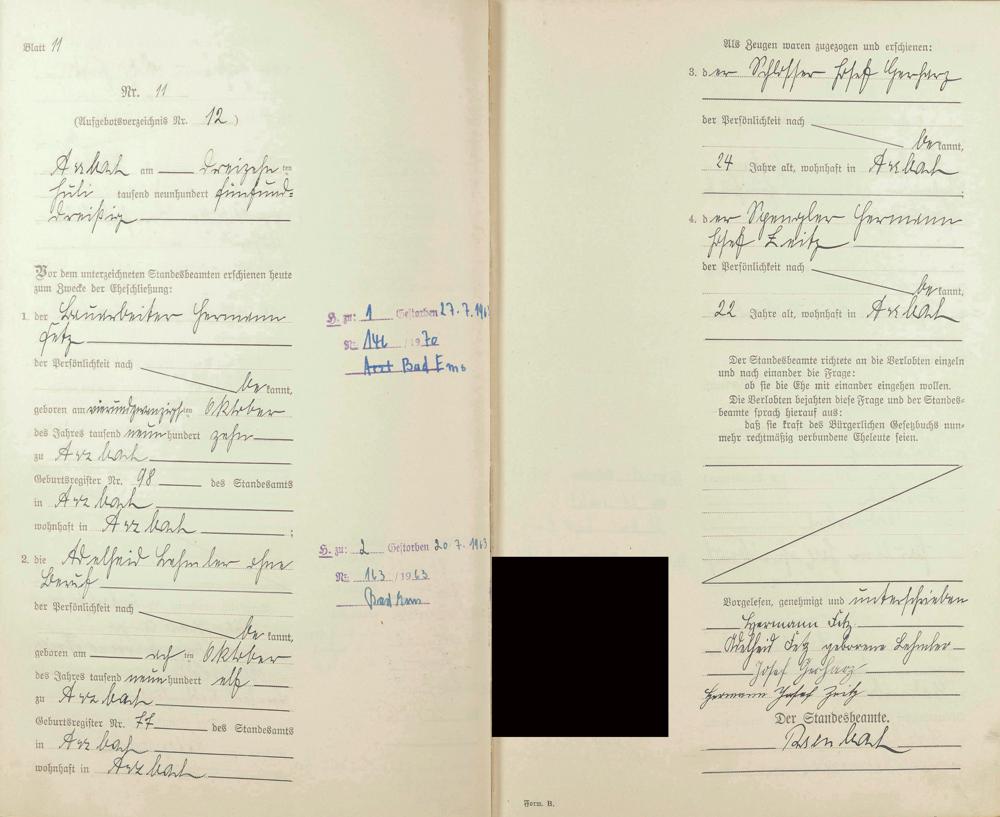 Blatt 11
Nr. 11
(Aufgebotsverzeichnis Nr. 12)
Arzbach am dreizehn ten
Juli tausend neunhundert fünfund=
dreißig
Vor dem unterzeichneten Standesbeamten erschienen heute
zum Zwecke der Eheschließung:
1. der Bauarbeiter Hermann
Fetz
der Persönlichkeit nach
be kannt,
geboren am vierundzwanzigsten Oktober
des Jahres tausend neun hundert zehn
zu Arzbach
Geburtsregister Nr. 98 des Standesamts
in Arzbach
wohnhaft in Arzbach ;
2. die Adelheid Lehmler ohne
Beruf
der Persönlichkeit nach
be kannt,
geboren am ach ten Oktober
des Jahres tausend neun hundert elf
zu Arzbach
Geburtsregister Nr. 77 des Standesamts
in Arzbach
wohnhaft in Arzbach
H. zu: 1 Gestorben 27.7.
Nr. 146 /1970
Bad Ems
H. zu: 2 Gestorben 20.7.1963
Nr. 163 /1963
Bad Ems
Als Zeugen waren zugezogen und erschienen:
3. der Schlosser Josef Gerharz
der Persönlichkeit nach
be kannt,
24 Jahre alt, wohnhaft in Arzbach
;
4. der Spengler Hermann
Josef Zeitz
der Persönlichkeit nach
be kannt,
22 Jahre alt, wohnhaft in Arzbach
Der Standesbeamte richtete an die Verlobten einzeln
und nach einander die Frage:
ob sie die Ehe mit einander eingehen wollen.
Die Verlobten bejahten diese Frage und der Standes=
beamte sprach hierauf aus:
daß sie kraft des Bürgerlichen Gesetzbuchs nun=
mehr rechtmäßig verbundene Eheleute seien.
Vorgelesen, genehmigt und unterschrieben
Hermann Fetz
Adelheid Fetz geborene Lehmler
Josef Gerharz
Hermann Josef Zeitz
Der Standesbeamte.
Form. B.